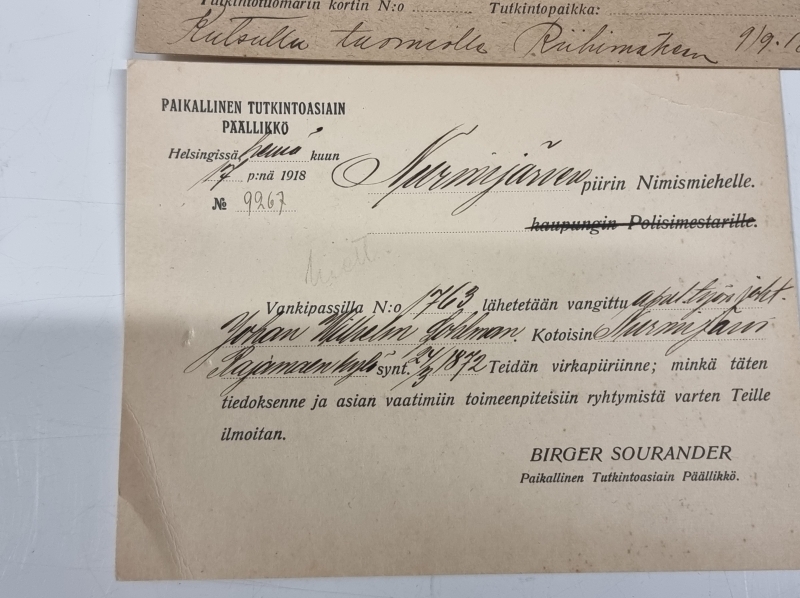 Tutkintotuomarin kortin N:o Tutkintopaikka:
Kutsullu tuomiolle Riihimäken 9/9.
PAIKALLINEN TUTKINTOASIAIN
PÄÄLLIKKÖ
Helsingissä, heinä kuun
17 p:nä 1918
№ 9267
Nurmijärven piirin Nimismiehelle.
haupungin Polisimestarille.
Vankipassilla N:o 1763 lähetetään vangittu apul. työnjoht.
Johan Wilhelm Kotoisin Nurmijärvi
Rajamäen kylä synt. 1872 Teidän virkapiiriinne; minkä täten
tiedoksenne ja asian vaatimiin toimeenpiteisiin ryhtymistä varten Teille
ilmoitan.
BIRGER SOURANDER
Paikallinen Tutkintoasiain Päällikkö.